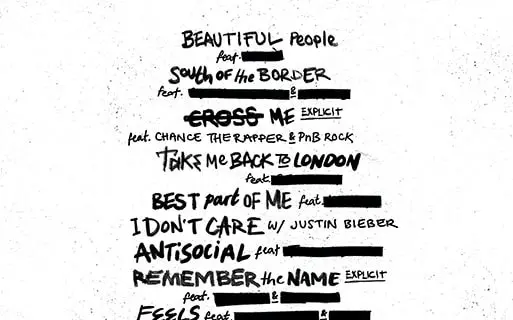 BEAUTIFUL People
feat.
South OF the BORDER
feat. &
CROSS ME EXPLICIT
feat. CHANCE THE RAPPER & PnB ROCK
TAKE Me BACK TO LONDON
feat.
BEST part OF ME feat.
I DON'T CARE W/ JUSTIN BIEBER
ANTISOCIAL feat
REMEMBER the NAME EXPLICIT
feat. &
FEELS feat. &